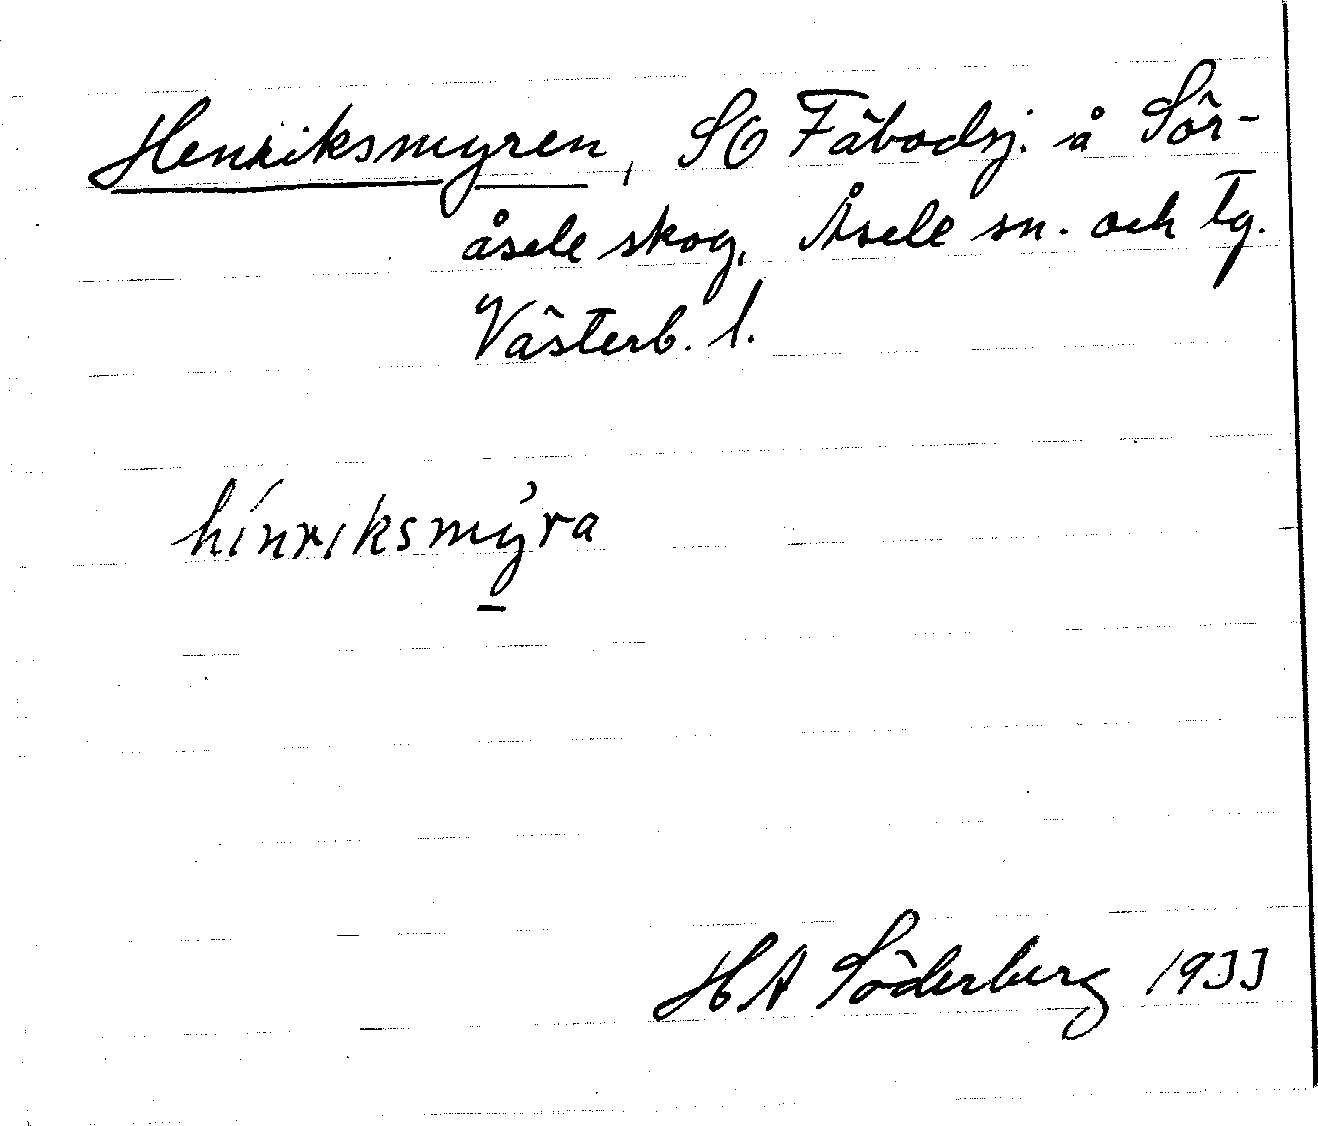 Henriksmyren, SO Fäbodsj. å Sör-
åsele skog, Åsele sn. och tg.
Västerb. l.
hínriksmy̠̒ra
H A Söderberg 1933